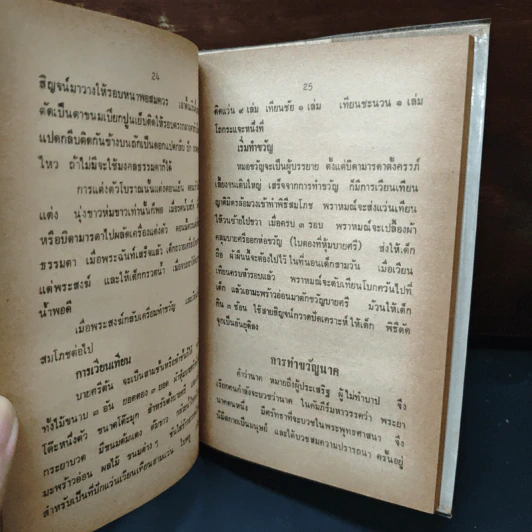 24
สิญจน์มาวางให้รอบหนาพอสมควร
ตัดเป็นตาขนมเปียกปูนเย็บติดให้รอบ
แปดกลีบติดกันข้างบนถักเป็นดอกแปดกลีบ
ไหว ถ้าไม่มีจะใช้มงคลธรรมดาก็ได้
การแต่งตัวโบราณนั้นแต่งตอนเย็น
แต่ง นุ่งขาวห่มขาวเท่านั้นก็พอ
หรือบิดามารดาไปผลัดเครื่องแต่งตัว
ธรรมดา เมื่อพระฉันท์เสร็จแล้ว
แด่พระสงฆ์ และให้เด็กกรวดน้ำ
น้ำพอดี
เมื่อพระสงฆ์กลับเตรียมทำขวัญ
สมโภชต่อไป
การเวียนเทียน
บายศรีต้น จะเป็นสามชั้นหรือห้าชั้นก็ได้
ทั้งไม้ขนาบ ๓ อัน ยอดตอง ๓ ยอด
โต๊ะหนึ่งตัว ขนาดโต๊ะมุก สำหรับตั้งบายศรี
กระยาบวด มีขนมต้มแดง ต้มขาว
มะพร้าวอ่อน ผลไม้ ขนมต่าง ๆ
สำหรับเป็นที่ปักแว่นเวียนเทียนสามแว่น
25
ติดแว่น ๙ เล่ม เทียนชัย ๑ เล่ม เทียนชะนวน ๑ เล่ม
โถกระแจะหนึ่งที่
เริ่มทำขวัญ
หมอขวัญจะเป็นผู้บรรยาย ตั้งแต่บิดามารดาตั้งครรภ์
เลี้ยงจนเติบใหญ่ เสร็จจากการทำขวัญ ก็มีการเวียนเทียน
ญาติมิตรล้อมวงเข้าทำพิธีสมโภช พราหมณ์จะส่งแว่นเทียน
ให้วนซ้ายไปขวา เมื่อครบ ๓ รอบ พราหมณ์จะเปลื้องผ้า
คลุมบายศรีออกห่อขวัญ (ใบตองที่หุ้มบายศรี) ส่งให้เด็ก
ถือ ผ้าผืนนี้จะต้องไปไว้ในที่นอนเด็กสามวัน เมื่อเวียน
เทียนครบห้ารอบแล้ว พราหมณ์จะดับเทียนโบกควันไปที่
เด็ก แล้วเอามะพร้าวอ่อนมาตักขวัญบายศรี ป้อนให้เด็ก
กิน ๓ ช้อน ใช้สายสิญจน์กวาดปัดเคราะห์ให้เด็ก พิธีตัด
จุกเป็นอันยุติลง
การทำขวัญนาค
คำว่านาค หมายถึงผู้ประเสริฐ ผู้ไม่ทำบาป จึง
เรียกคนกำลังจะบวชว่านาค ในคัมภีร์มหาวรรคว่า พระยา
นาคตนหนึ่ง มีศรัทธาที่จะบวชในพระพุทธศาสนา จึง
นิมิตกายเป็นมนุษย์ และได้บวชสมความปรารถนา ครั้นอยู่